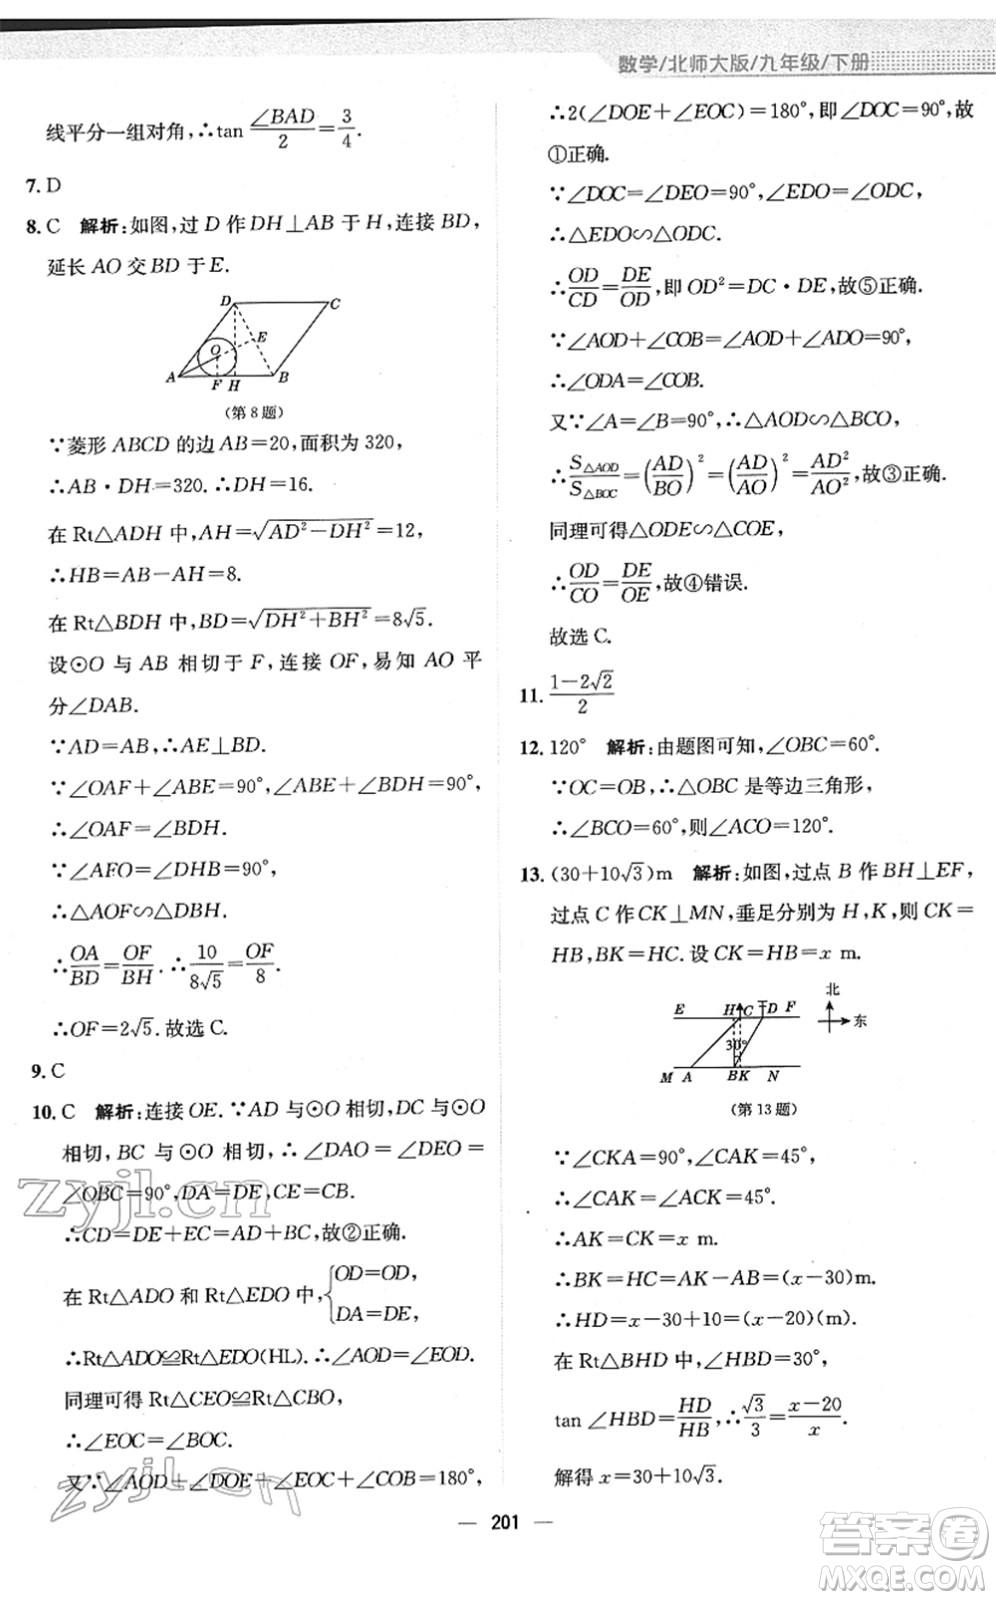 数学/北师大版/九年级/下册
线平分一组对角,∴tan ∠BAD/2 = 3/4.
7. D
8. C 解析:如图,过 D 作 DH⊥AB 于 H,连接 BD,
延长 AO 交 BD 于 E.
D C
O E
A F H B
(第 8 题)
∵菱形 ABCD 的边 AB=20,面积为 320,
∴AB·DH=320.∴DH=16.
在 Rt△ADH 中,AH=√(AD²-DH²)=12,
∴HB=AB-AH=8.
在 Rt△BDH 中,BD=√(DH²+BH²)=8√5.
设⊙O 与 AB 相切于 F,连接 OF,易知 AO 平
分∠DAB.
∵AD=AB,∴AE⊥BD.
∵∠OAF+∠ABE=90°,∠ABE+∠BDH=90°,
∴∠OAF=∠BDH.
∵∠AFO=∠DHB=90°,
∴△AOF∽△DBH.
∴OA/BD=OF/BH.∴10/(8√5)=OF/8.
∴OF=2√5.故选 C.
9. C
10. C 解析:连接 OE.∵AD 与⊙O 相切,DC 与⊙O
相切,BC 与⊙O 相切,∴∠DAO=∠DEO=
∠OBC=90°,DA=DE,CE=CB.
∴CD=DE+EC=AD+BC,故②正确.
在 Rt△ADO 和 Rt△EDO 中,{OD=OD,
DA=DE,
∴Rt△ADO≌Rt△EDO(HL).∴∠AOD=∠EOD.
同理可得 Rt△CEO≌Rt△CBO,
∴∠EOC=∠BOC.
又∵∠AOD+∠DOE+∠EOC+∠COB=180°,
∴2(∠DOE+∠EOC)=180°,即∠DOC=90°,故
①正确.
∵∠DOC=∠DEO=90°,∠EDO=∠ODC,
∴△EDO∽△ODC.
∴OD/CD=DE/OD,即 OD²=DC·DE,故⑤正确.
∵∠AOD+∠COB=∠AOD+∠ADO=90°,
∴∠ODA=∠COB.
又∵∠A=∠B=90°,∴△AOD∽△BCO,
∴S△AOD/S△BOC=(AD/BO)²=(AD/AO)²=AD²/AO²,故③正确.
同理可得△ODE∽△COE,
∴OD/CO=DE/OE,故④错误.
故选 C.
11. (1-2√2)/2
12. 120° 解析:由题图可知,∠OBC=60°.
∵OC=OB,∴△OBC 是等边三角形,
∴∠BCO=60°,则∠ACO=120°.
13. (30+10√3)m 解析:如图,过点 B 作 BH⊥EF,
过点 C 作 CK⊥MN,垂足分别为 H,K,则 CK=
HB,BK=HC.设 CK=HB=x m.
北
E H C D F 东
30°
M A B K N
(第 13 题)
∵∠CKA=90°,∠CAK=45°,
∴∠CAK=∠ACK=45°.
∴AK=CK=x m.
∴BK=HC=AK-AB=(x-30)m.
∴HD=x-30+10=(x-20)(m).
在 Rt△BHD 中,∠HBD=30°,
tan∠HBD=HD/HB,∴√3/3=(x-20)/x.
解得 x=30+10√3.
— 201 —
zyjl.cn
zyjl.cn
答案圈
MXQE.COM